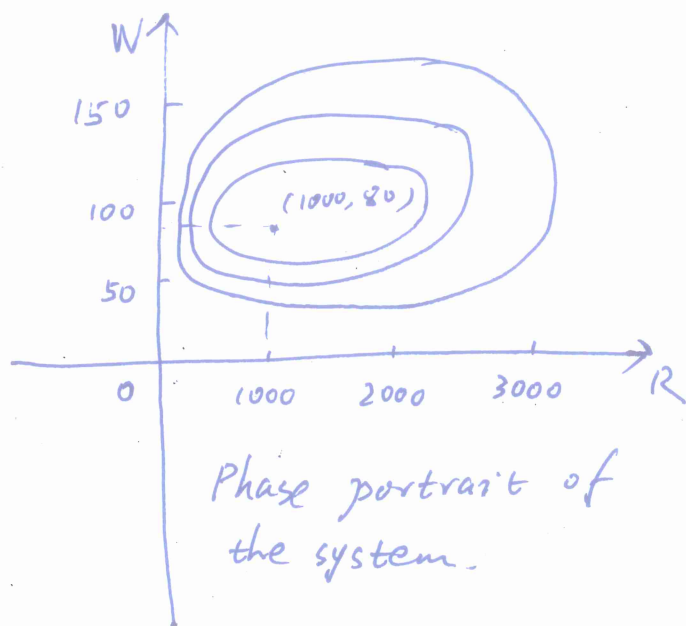 W
150
(1000, 80)
100
50
0
1000
2000
3000
R
Phase portrait of
the system.